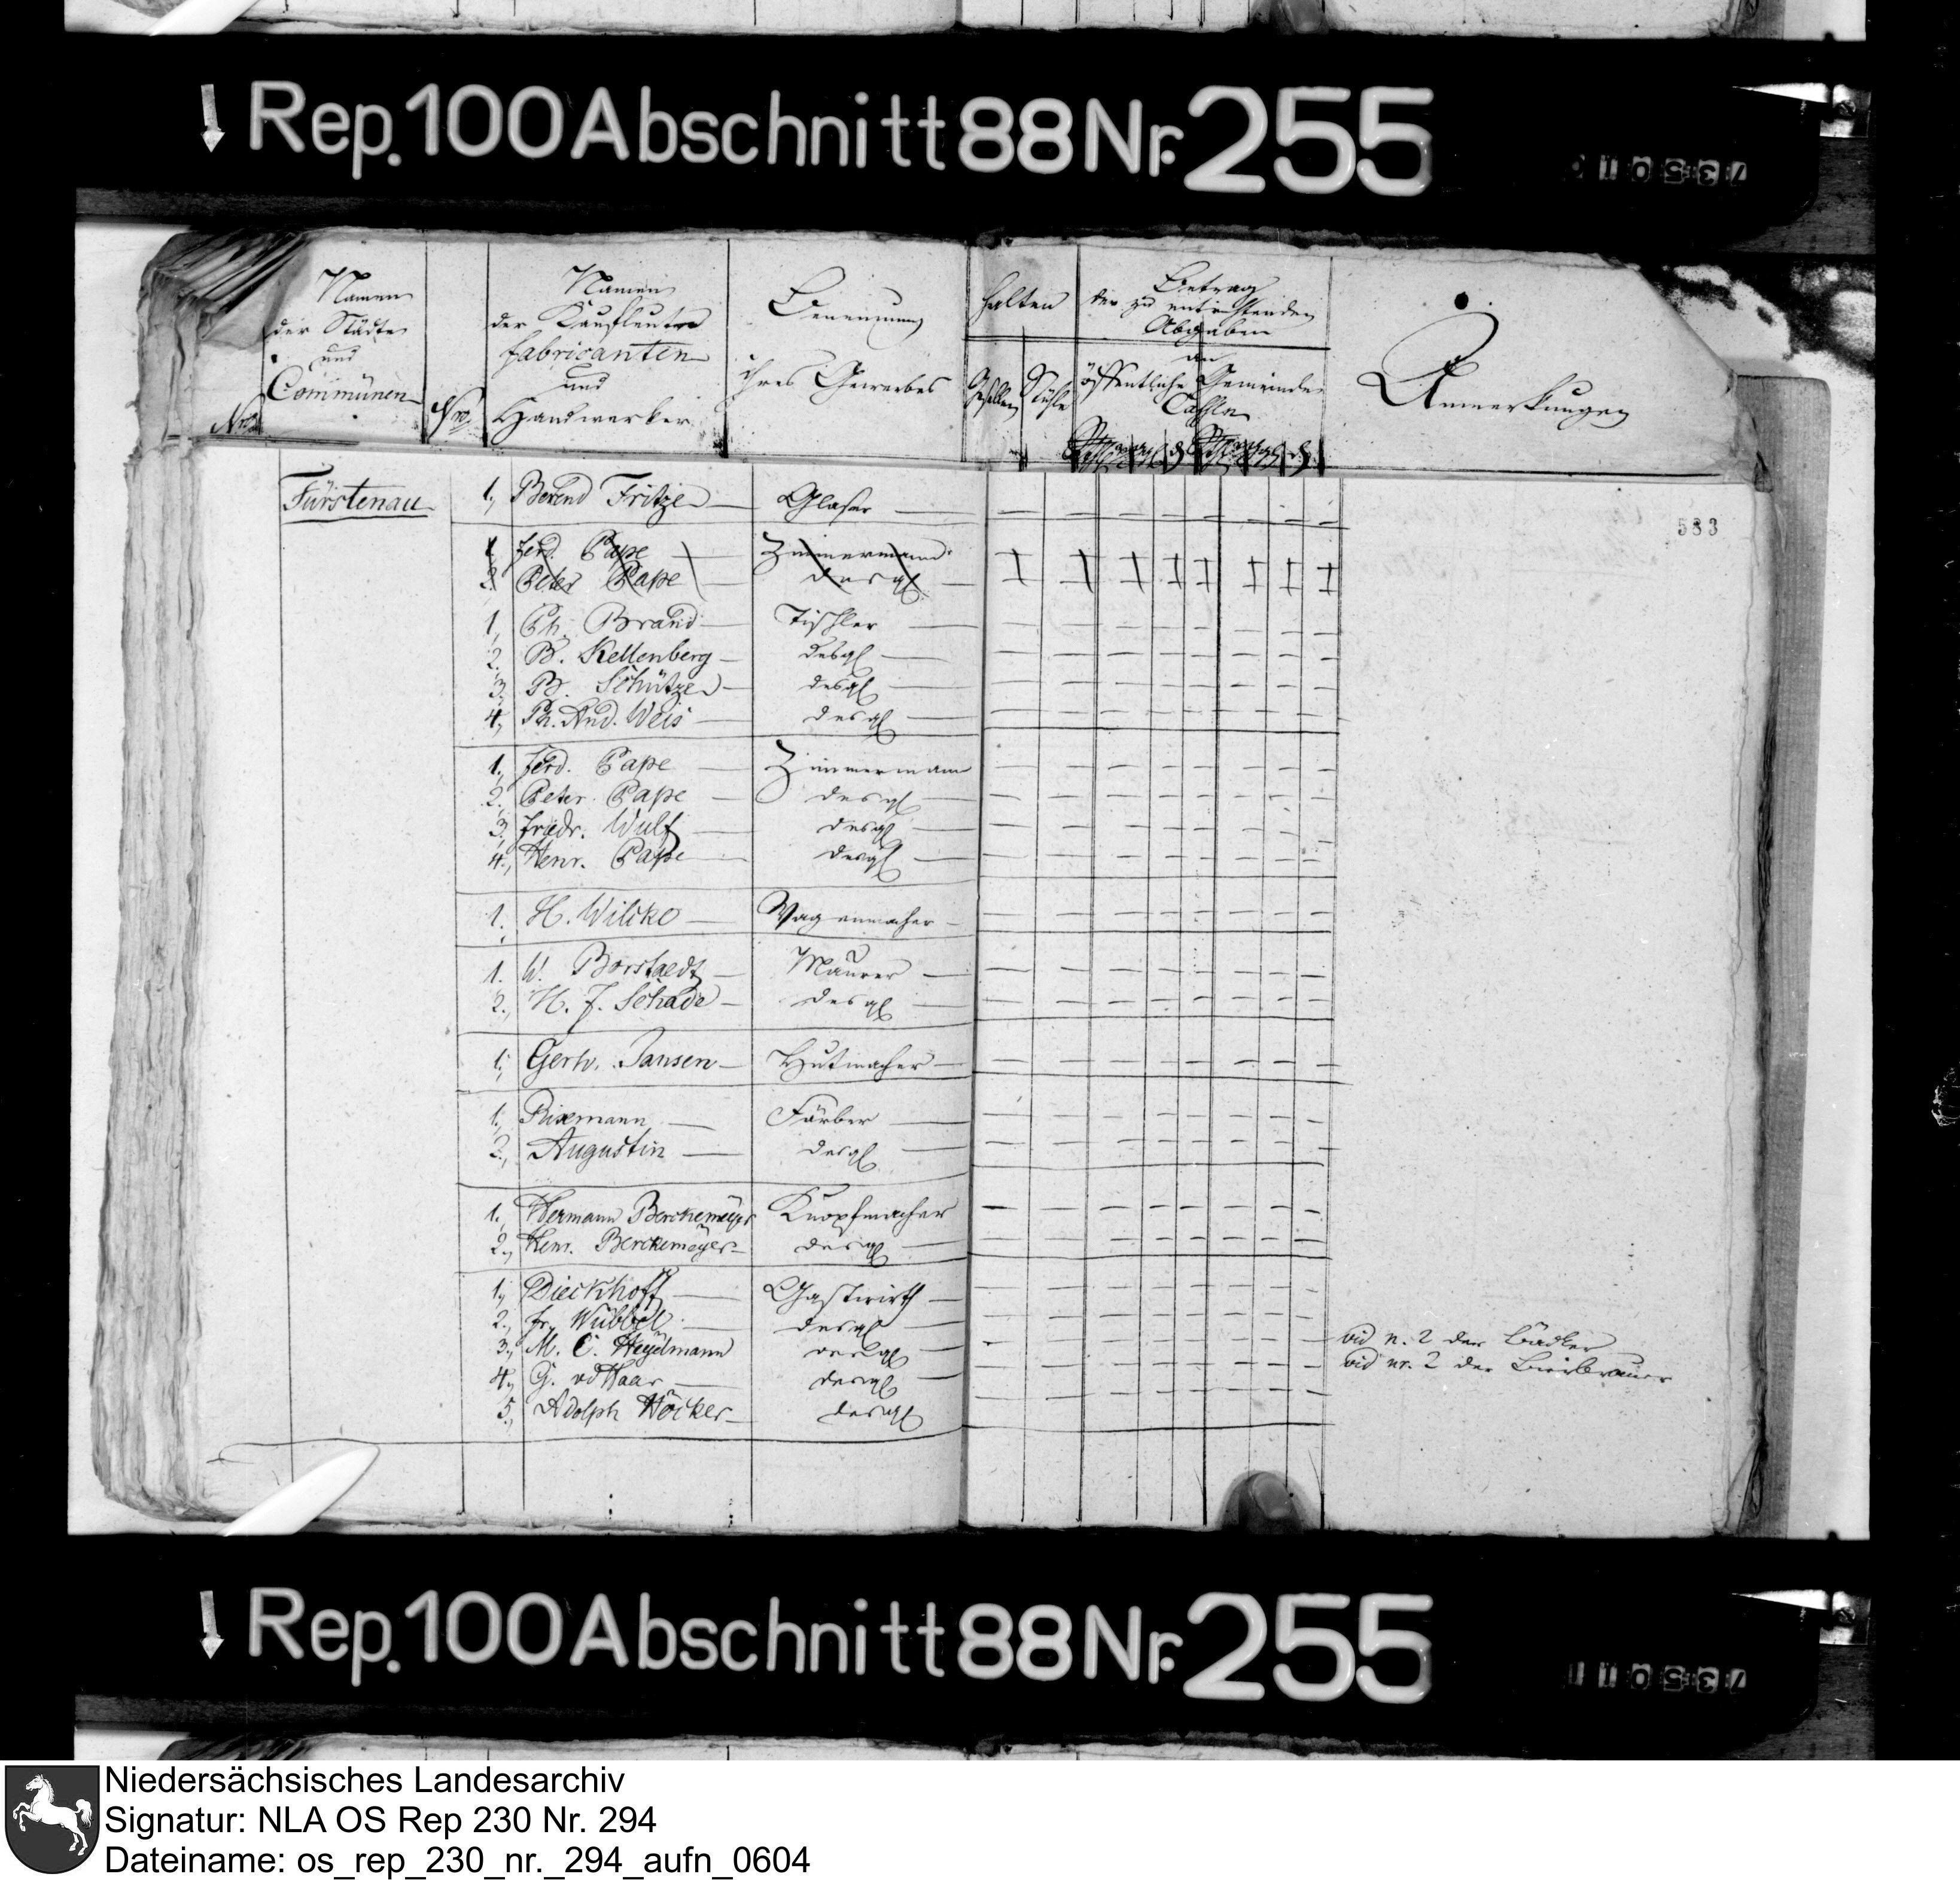 Rep. 100 Abschnitt 88 Nr. 255
735011
Namen
der Städte
und
Communen
Nro
Nro
Namen
der Kaufleute
fabricanten
und
Handwerker
Benennung
ihres Gewerbes
halten
Gesellen
Stühle
Betrag
der zu entrichtenden
Abgaben
an
öffentliche Gemeinde
Cassen
Anmerkungen
583
Fürstenau
1., Berend Fritze — Glaser — — — — — — — —
1. Ferd. Pape — Zimmermann
2. Peter Pape — desgl —
1, Ph. Brand — Tischler — — — — — — — —
2. B. Kellenberg — desgl — — — — — — — —
3. B. Schütze — desgl — — — — — — — —
4, Ph. And. Weis — desgl — — — — — — — —
1., Ferd. Pape — Zimmermann — — — — — — — —
2., Peter Pape — desgl — — — — — — — —
3, Friedr. Wulf — desgl — — — — — — — —
4., Henr. Pape — desgl — — — — — — — —
1. H. Wilcke — Wagenmacher — — — — — — — —
1. W. Borstaedt — Maurer — — — — — — — —
2., H. F. Schade — desgl — — — — — — — —
1., Gerh. Jansen — Hutmacher — — — — — — — —
1., — Färber — — — — — — — —
2., Augustin — desgl — — — — — — — —
1., Hermann Berckemeyer Knopfmacher — — — — — — — —
2., Henr. Berckemeyer — desgl — — — — — — — —
1, Dieckhoff — Gastwirth — — — — — — — —
2., Fr. Wübbel — desgl — — — — — — — —
3., M. C. Heydmann desgl — — — — — — — — vid n. 2 der Bäcker
4., G. vd Haar — desgl — — — — — — — — vid nr. 2 der Bierbrauer
5., Adolph Höcker — desgl — — — — — — —
Rep. 100 Abschnitt 88 Nr. 255
735011
Niedersächsisches Landesarchiv
Signatur: NLA OS Rep 230 Nr. 294
Dateiname: os_rep_230_nr._294_aufn_0604